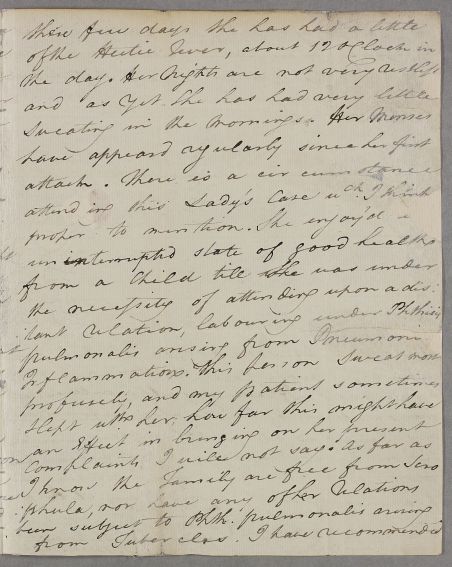 these few days she has had a little
of the Hectic Fever, about 12 o'Clock in
the day. Her Nights are not very restless
and as yet she has had very little
Sweating in the Mornings. Her Menses
have appeard regularly since her first
attack. There is a circumstance
attending this Lady's Case wch. I think
proper to mention. She enjoy'd
uninterrupted state of good health
from a Child till she was under
the necessity of attending upon a dis:
:tant relation, labouring under Phthisis
pulmonalis arising from Pneumonic
Inflammation. This person Sweat most
profusely, and my patient sometimes
slept with her. how far this might have
an Effect in bringing on her present
Complaints I will not say. As far as
I know the Family are free from Scro
:phula, nor have any other relations
been subject to Phth: pulmonalis arising
from Tubercles. I have recommended